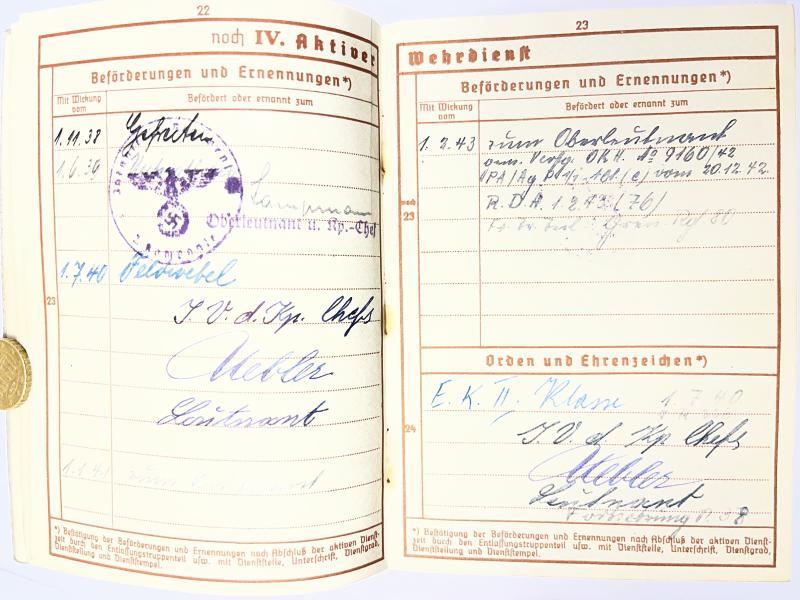 22
noch IV. Aktiver
Beförderungen und Ernennungen*)
Mit Wirkung vom
Befördert oder ernannt zum
1.11.38 Gefreiter
1.6.39
Oberleutnant u. Kp.-Chef
1.7.40 Feldwebel
23
I.V. d. Kp. Chefs
Uebler
Leutnant
*) Bestätigung der Beförderungen und Ernennungen nach Abschluß der aktiven Dienst-
zeit durch den Entlassungstruppenteil usw. mit Dienststelle, Unterschrift, Dienstgrad,
Dienststellung und Dienststempel.
23
Wehrdienst
Beförderungen und Ernennungen*)
Mit Wirkung vom
Befördert oder ernannt zum
1.2.43 zum Oberleutnant
vom. Verfg. OKH. No 9160/42
vom 20.12.42.
noch
23
R.D.A. 1.2.43 (76)
Orden und Ehrenzeichen*)
E.K. II. Klasse 1.7.40
I.V. d. Kp Chefs
24
Uebler
Leutnant
*) Bestätigung der Beförderungen und Ernennungen nach Abschluß der aktiven Dienst-
zeit durch den Entlassungstruppenteil usw. mit Dienststelle, Unterschrift, Dienstgrad,
Dienststellung und Dienststempel.